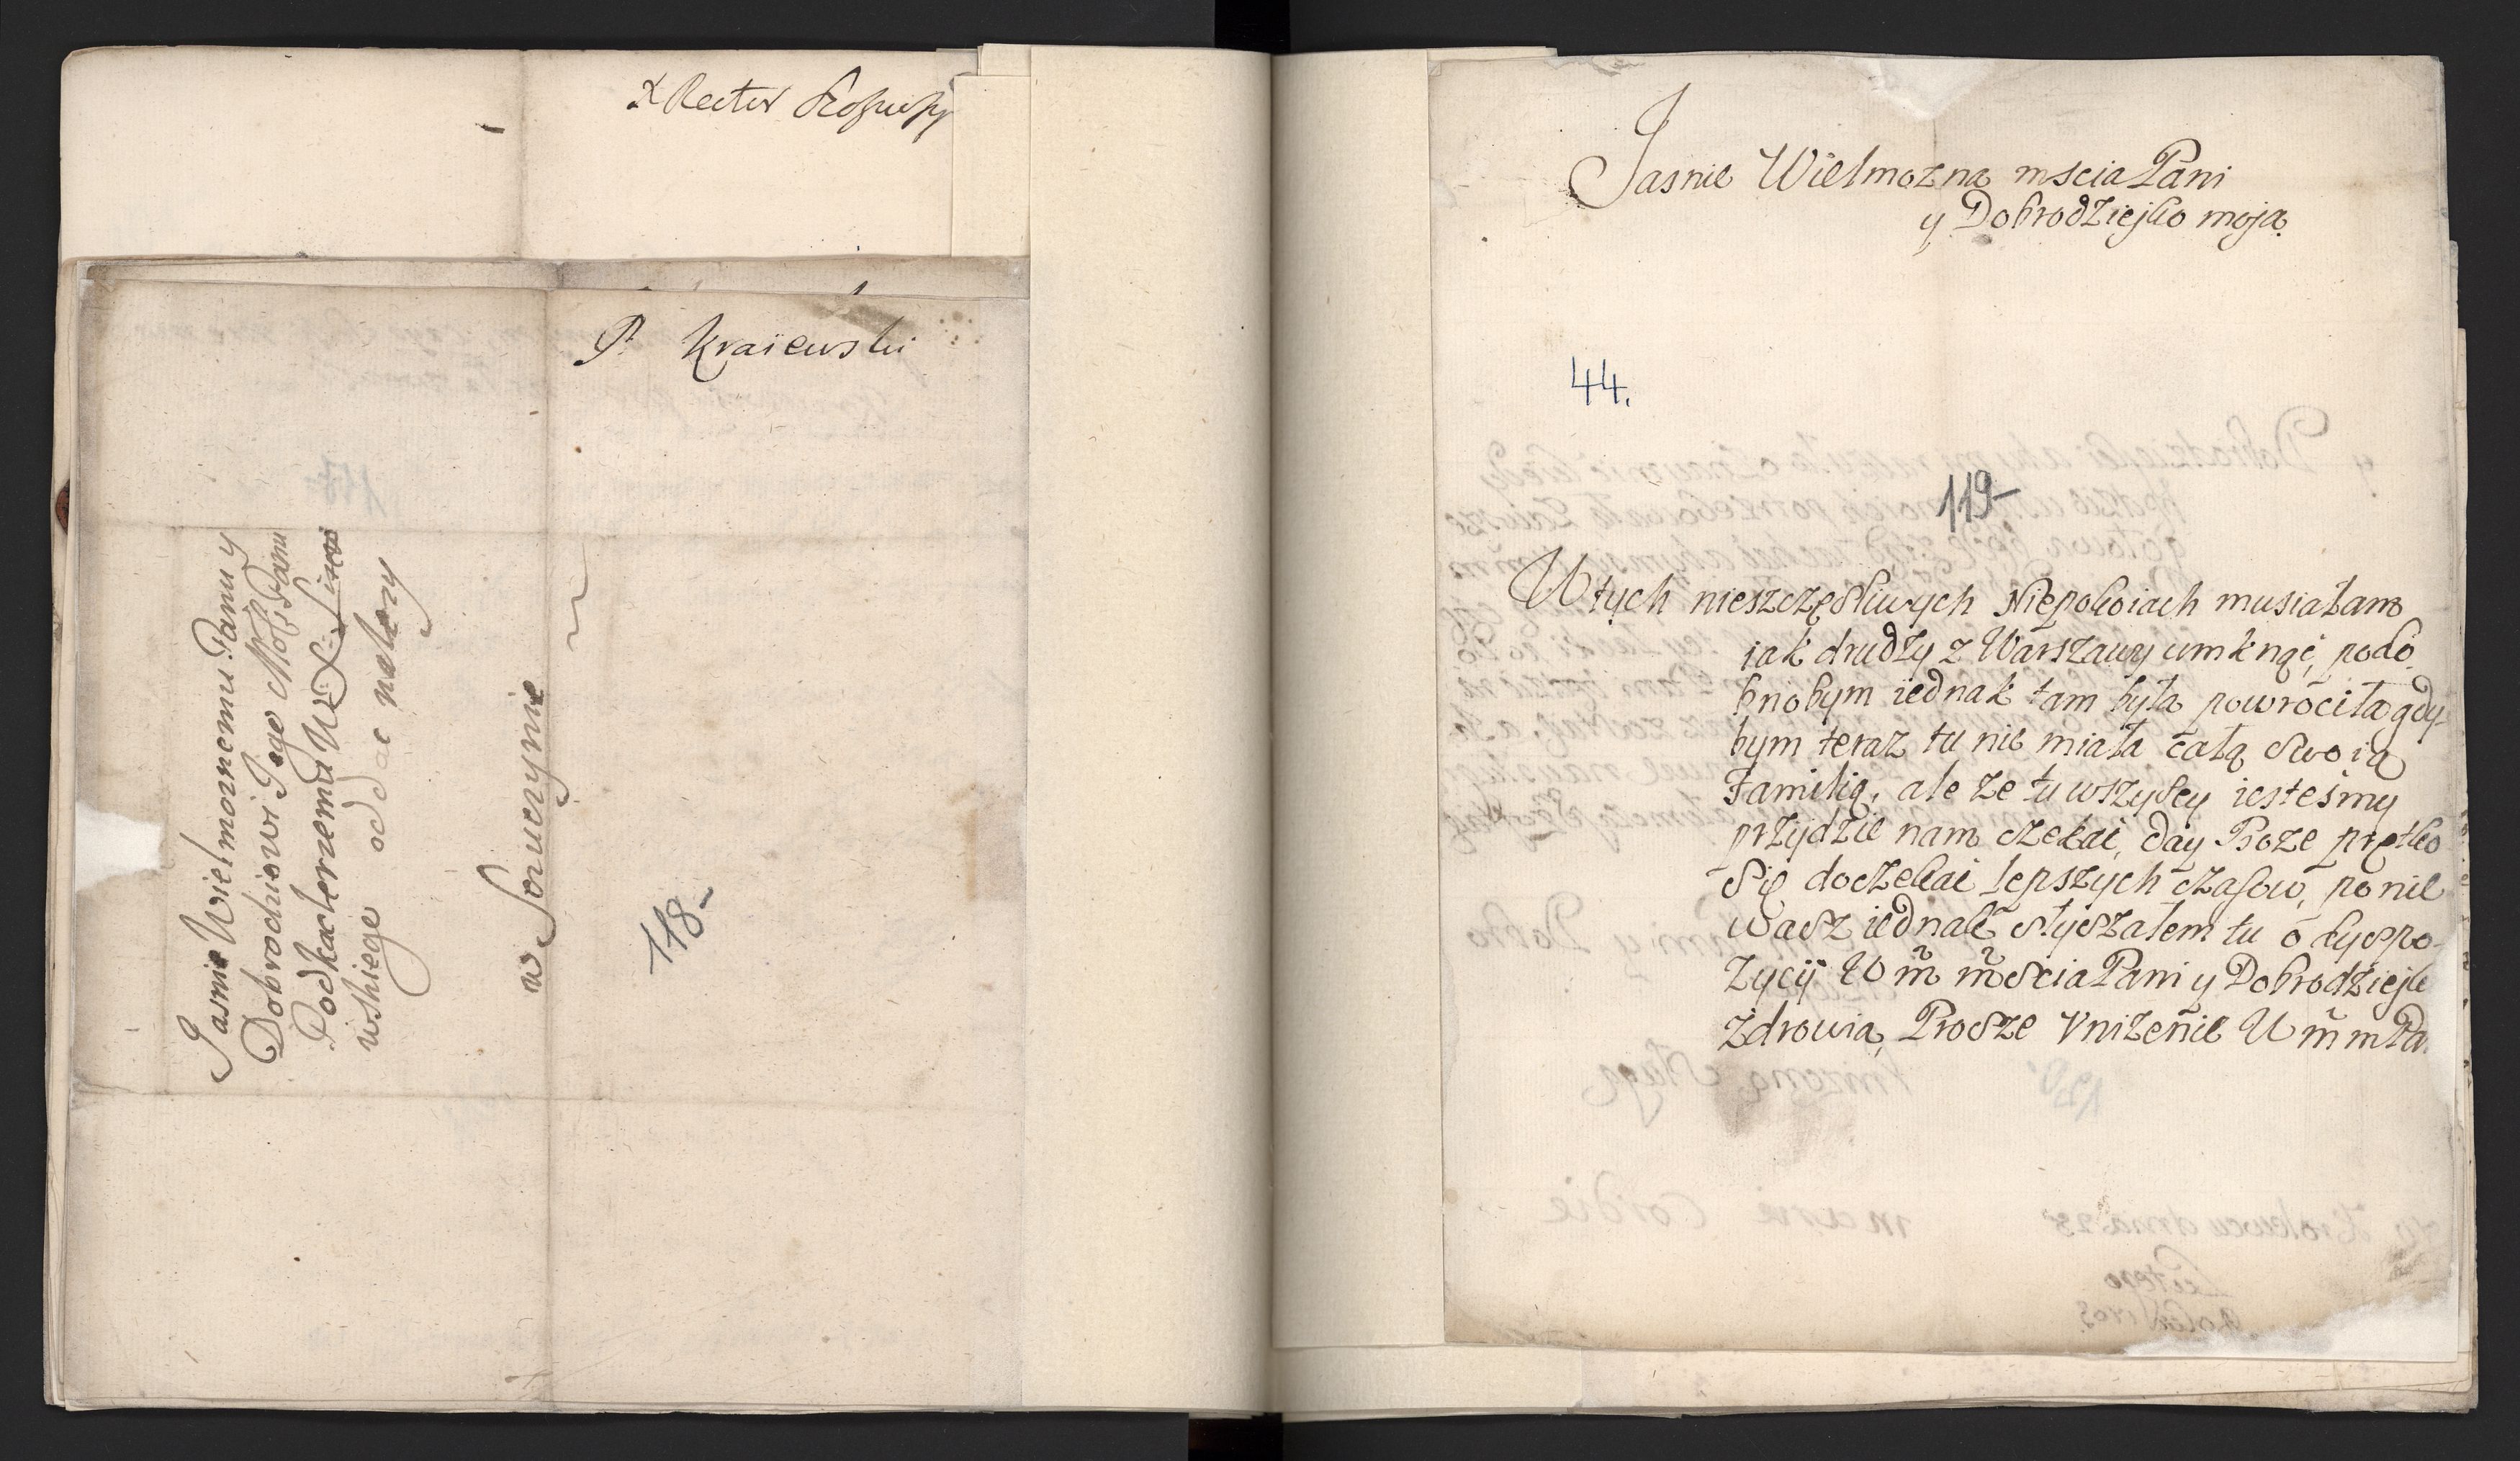 X Rector
P. Kraiewski
Jasnie Wielmoznemu Panu y
Dobrodieiowi Jego Mości Panu
Podkaclerzemu W X Litew
wskiege oddac nalezy
w Sczuczynie
118-
Jasnie Wielmozna mscia Pani
y Dobrodzieyko moja
44.
119-
W tych nieszczęsliwych Niepokoiach musiałam
iak drudzy z Warszawy umknąć, podo
bnobym iednak tam była powrociła gdy-
bym teraz tu nie miała całą swoią
Familią, ale ze tu wszyscy iestesmy
przyidzie nam czekai, day Boze prętko
Się doczekai lepszych czasow, ponie
wasz iednak słyszałem tu o dyspo-
zycij W m̃ m̃scia Pani y Dobrodzieyk
zdrowia, Prosze Vnizenie W m̃ m Pa